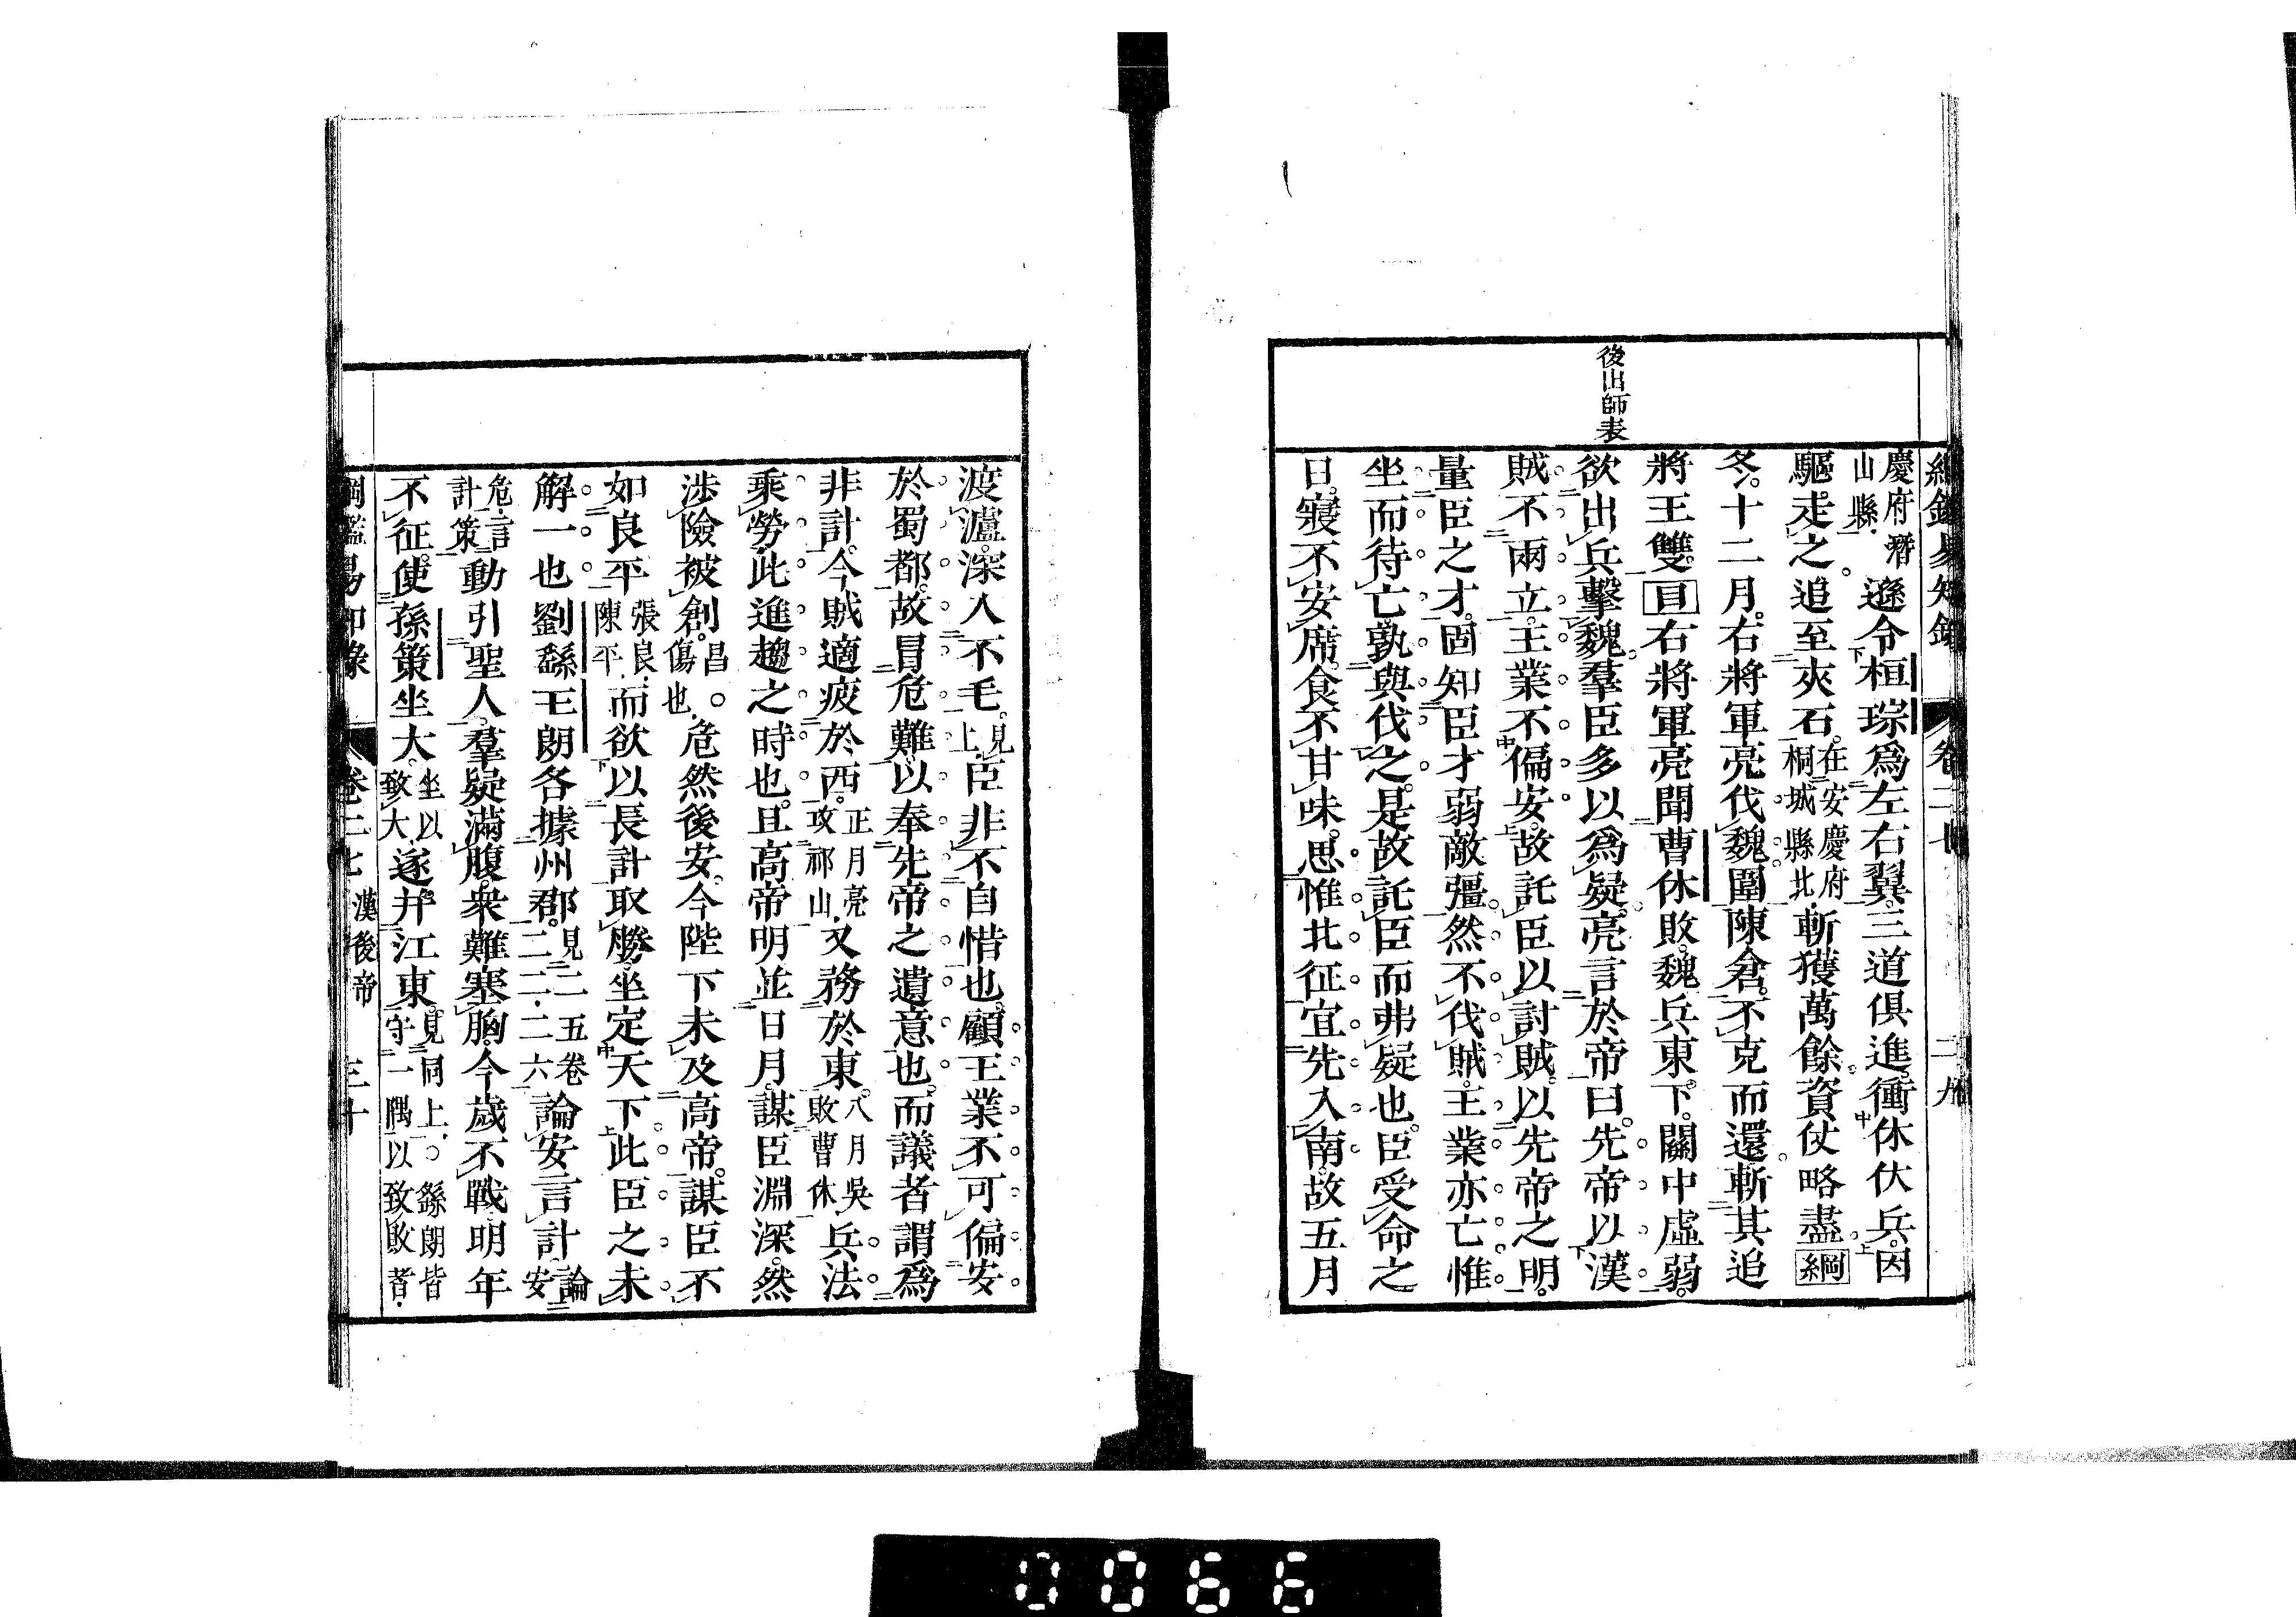 綱鑑易知錄 卷二十七 二九
後出師表
慶府潛山縣遜令桓琮爲左右翼三道俱進衝休伏兵因
驅走之追至夾石在安慶府桐城縣北斬獲萬餘資仗略盡綱
冬十二月右將軍亮伐魏圍陳倉不克而還斬其追
將王雙目右將軍亮聞曹休敗魏兵東下關中虛弱
欲出兵擊魏羣臣多以爲疑亮言於帝曰先帝以漢
賊不兩立王業不偏安故託臣以討賊以先帝之明
量臣之才固知臣才弱敵彊然不伐賊王業亦亡惟
坐而待亡孰與伐之是故託臣而弗疑也臣受命之
日寢不安席食不甘味思惟北征宜先入南故五月
渡瀘深入不毛見上臣非不自惜也顧王業不可偏安
於蜀都故冒危難以奉先帝之遺意也而議者謂爲
非計今賊適疲於西正月亮攻祁山又務於東八月吳敗曹休兵法
乘勞此進趨之時也且高帝明並日月謀臣淵深然
涉險被創昌傷也危然後安今陛下未及高帝謀臣不
如良平張良陳平而欲以長計取勝坐定天下此臣之未
解一也劉繇王朗各據州郡見二五卷二二二六論安言計論安
危言計策動引聖人羣疑滿腹衆難塞胸今歲不戰明年
不征使孫策坐大坐以致大遂幷江東見同上繇朗皆守一隅以致敗者
綱鑑易知錄 卷二七 漢後帝 三十
0066